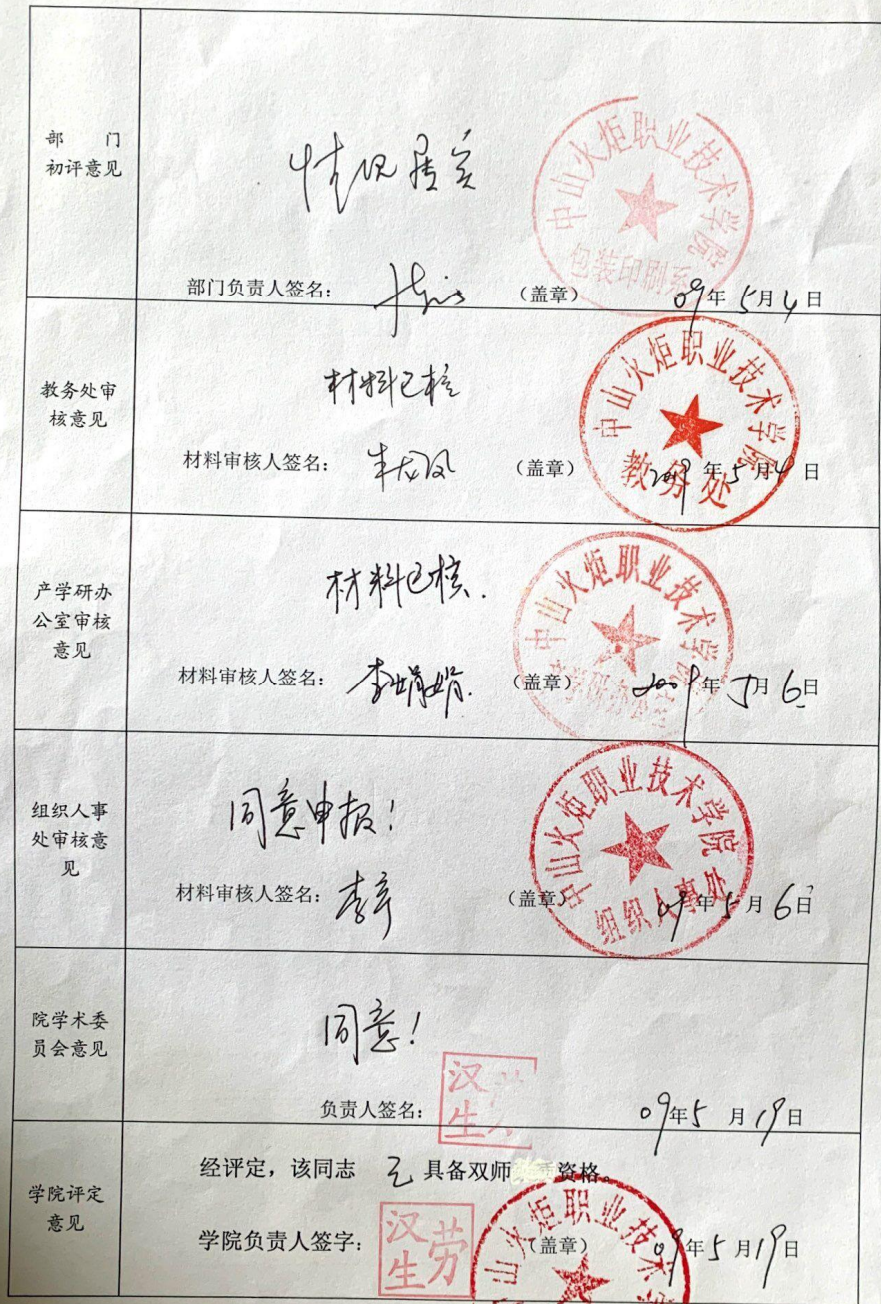 部 门
初评意见
情况属实
中山火炬职业技术学院
包装印刷系
部门负责人签名:
(盖章)
09年5月4日
教务处审
核意见
材料已核
中山火炬职业技术学院
教务处
材料审核人签名:
(盖章)
2009年5月4日
产学研办
公室审核
意见
材料已核.
中山火炬职业技术学院
产学研办公室
材料审核人签名:
李娟娟.
(盖章)
2009年5月6日
组织人事
处审核意
见
同意申报!
中山火炬职业技术学院
组织人事
材料审核人签名:
(盖章)
09年5月6日
院学术委
员会意见
同意!
负责人签名:
汉
生
09年5月19日
学院评定
意见
经评定,该同志 已 具备双师 资格。
学院负责人签字:
汉劳
生
(盖章)
中山火炬职业技术
09年5月19日